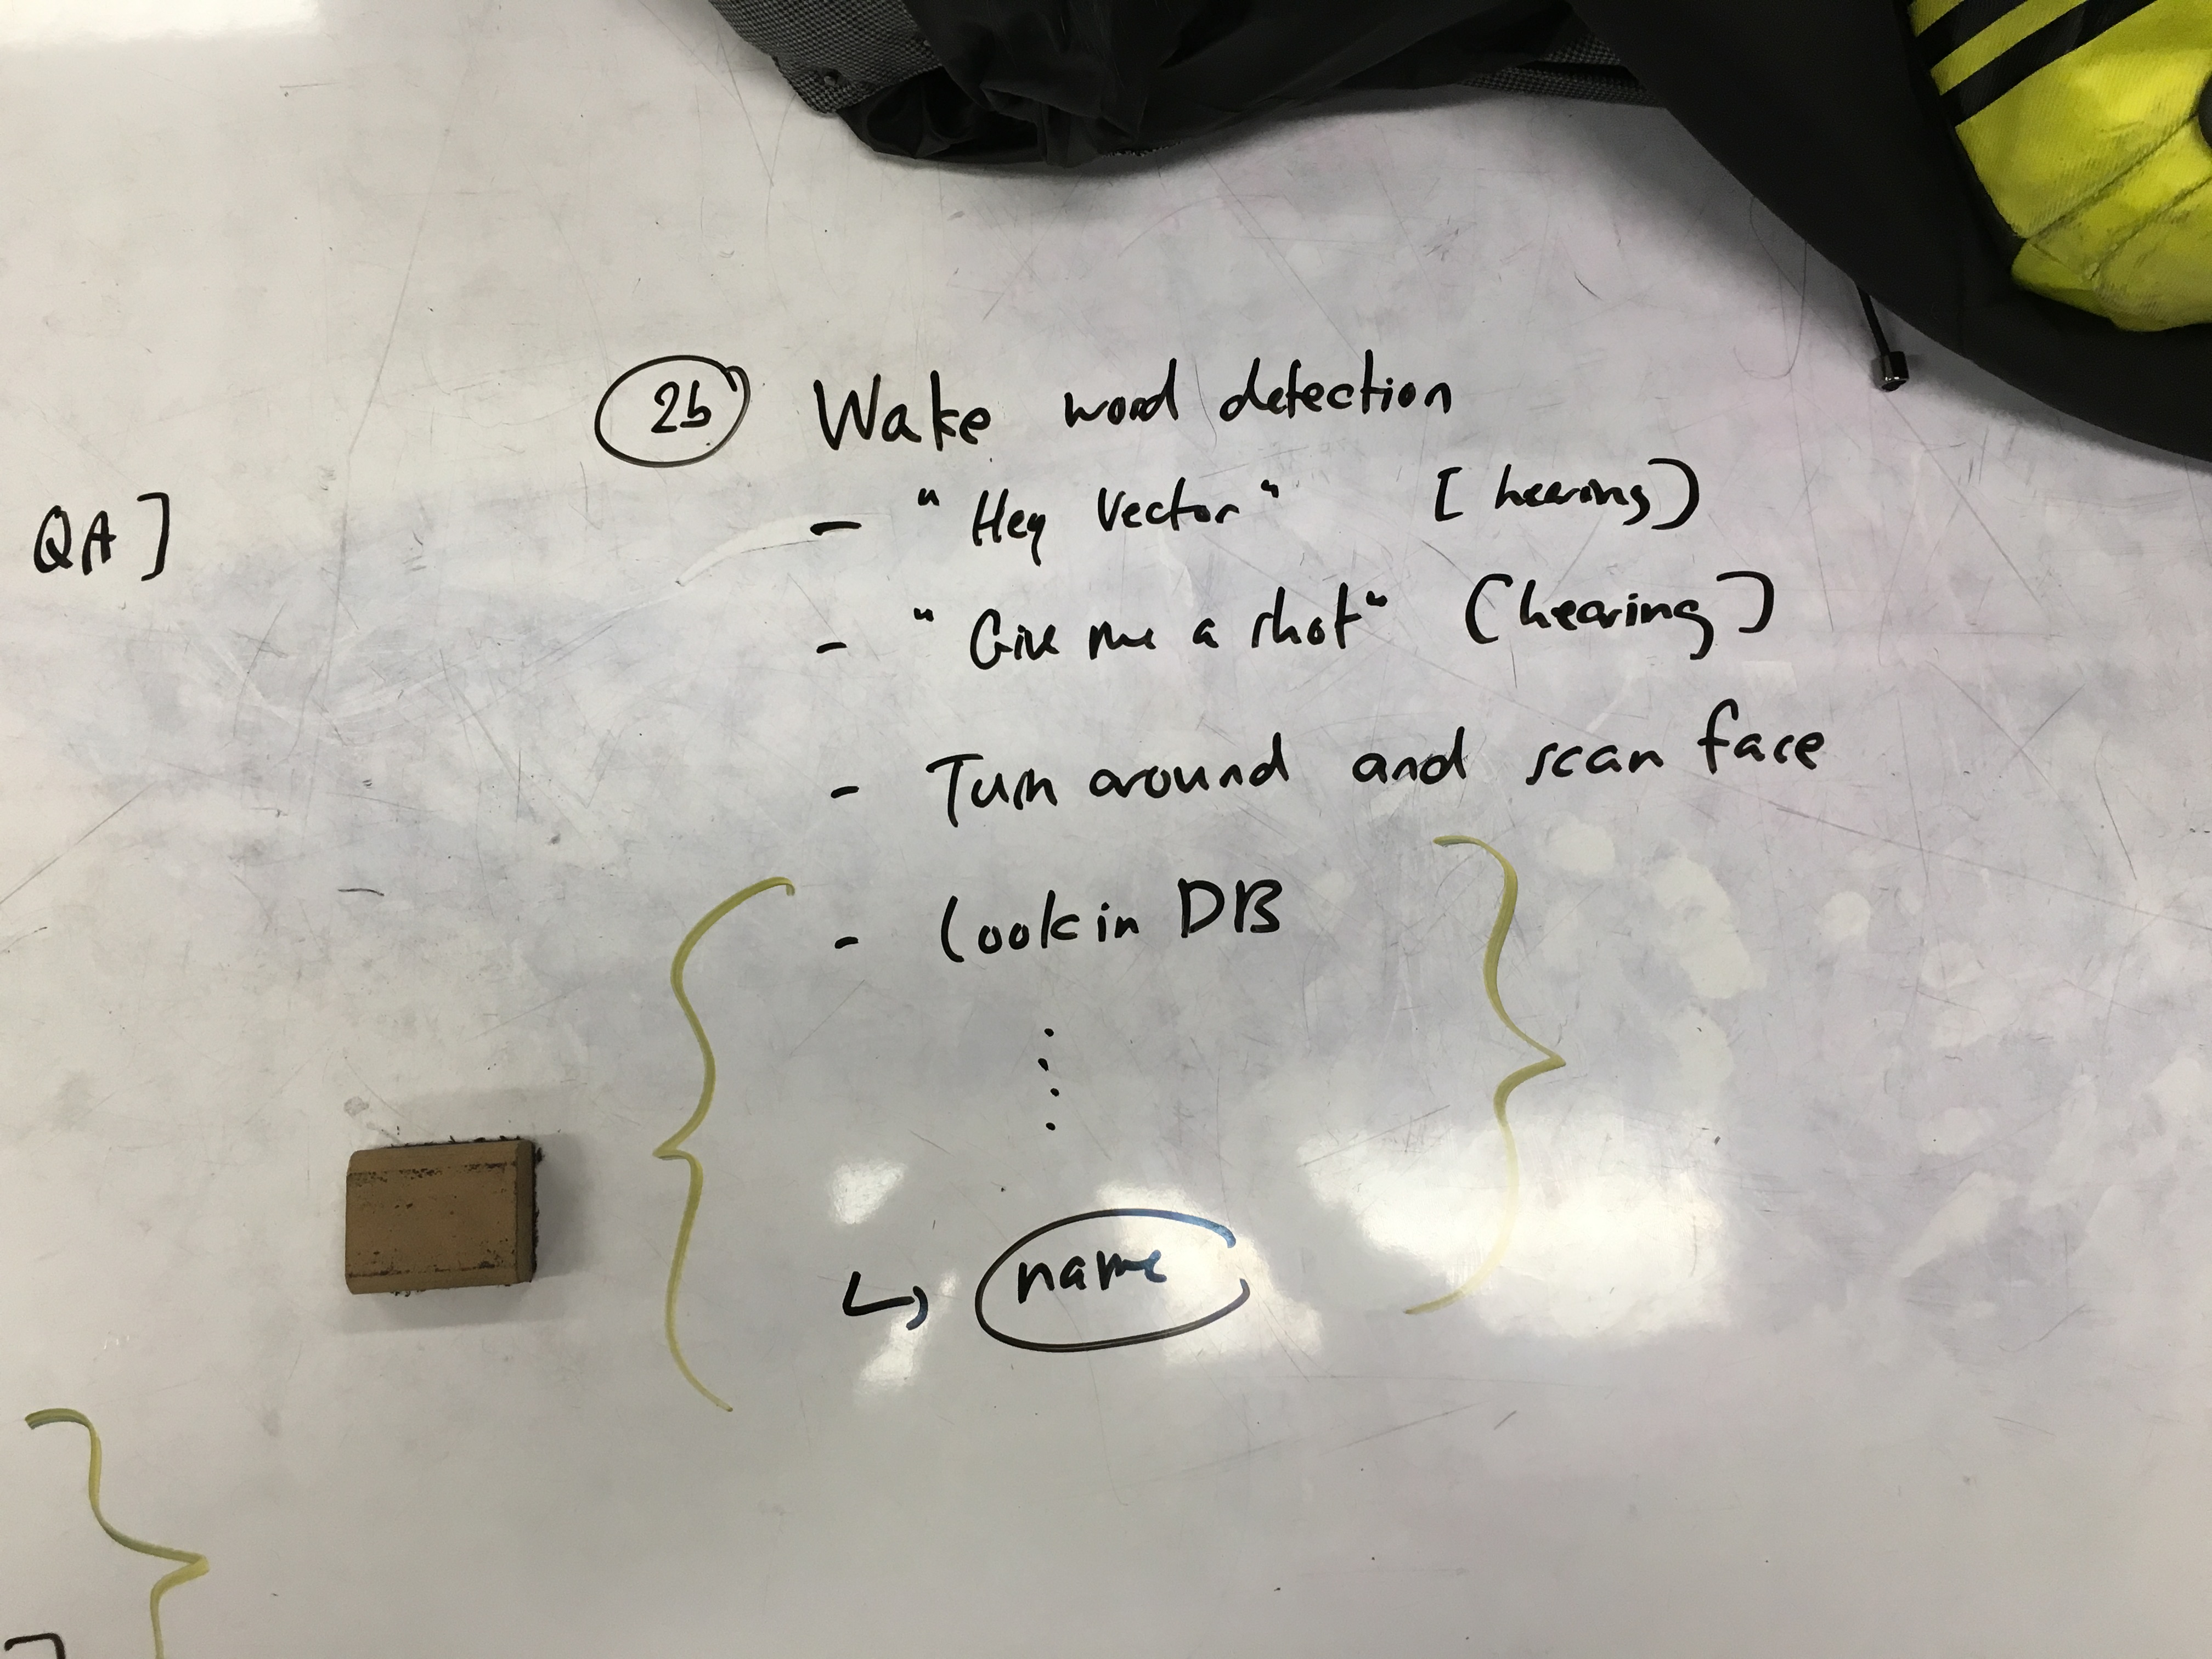 2b Wake word detection
QA]
- "Hey Vector" [hearing]
- "Give me a shot" [hearing]
- Turn around and scan face
- Look in DB
⋮
↳ name